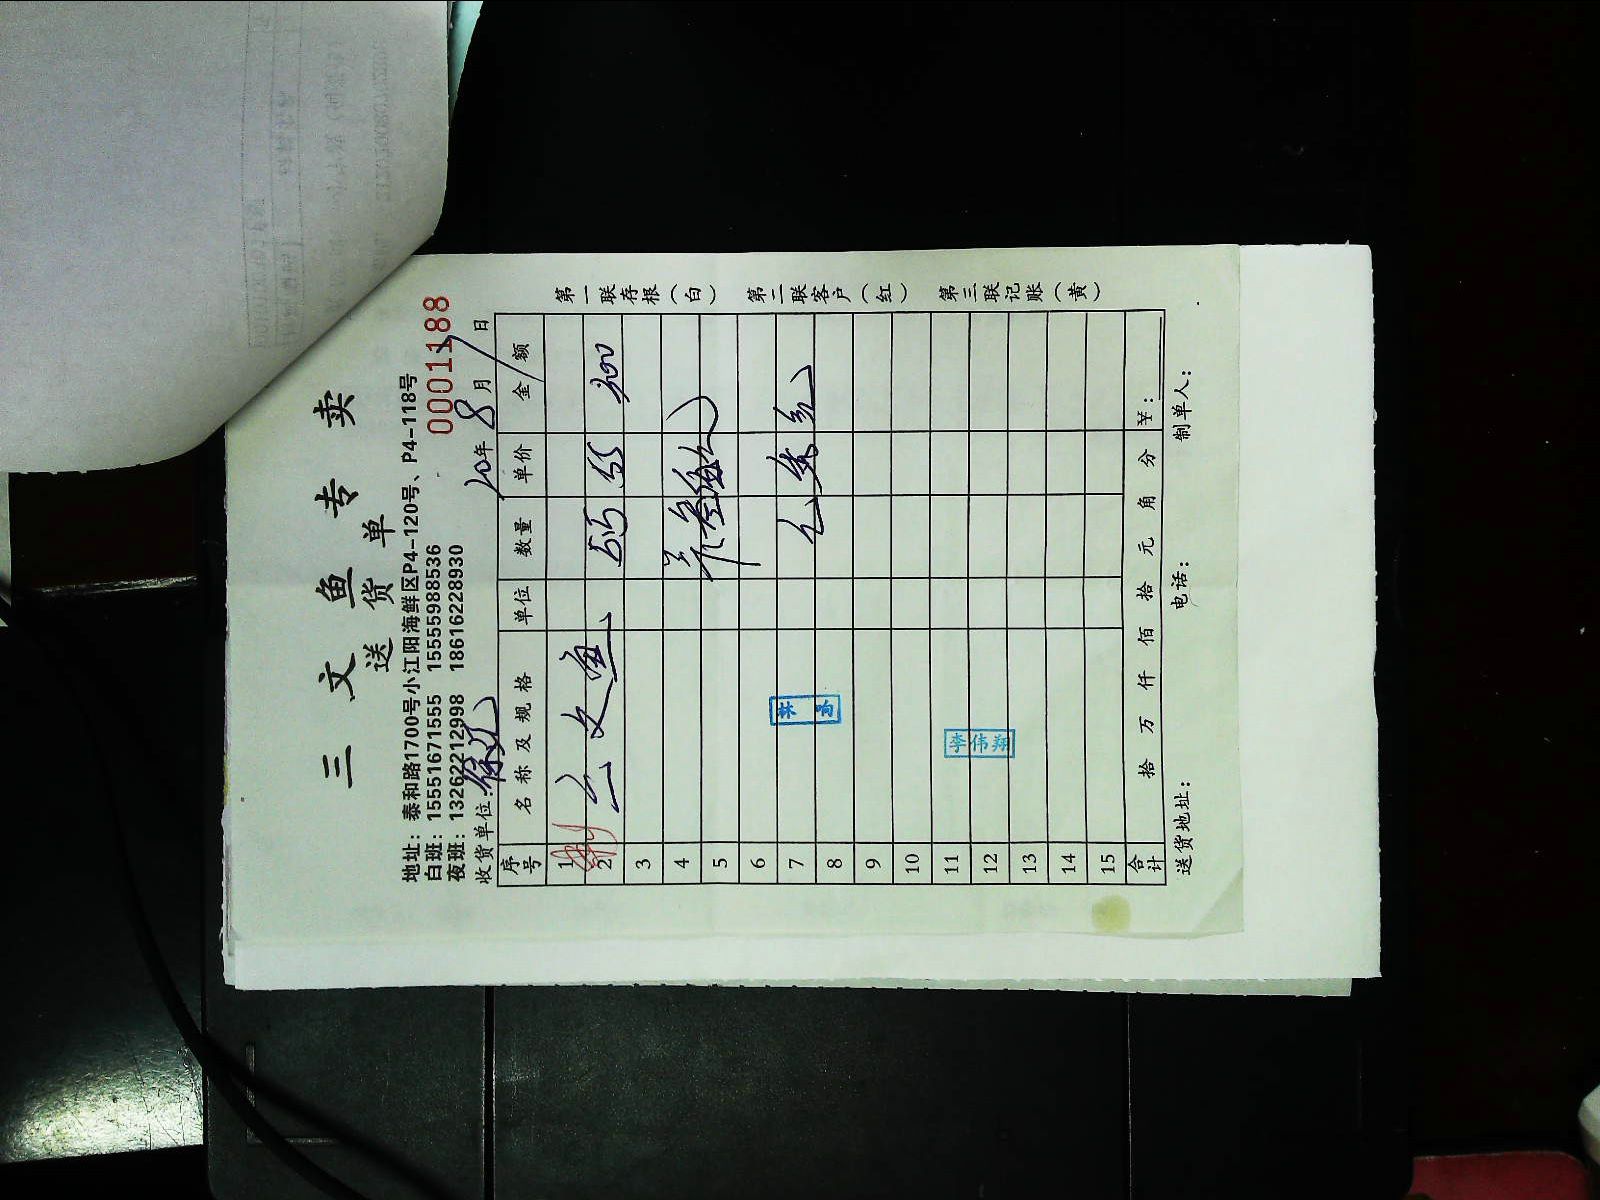 三文鱼专卖
送货单
地址：泰和路1700号小江阳海鲜区P4-120号、P4-118号
白班：15551671555 15555988536
夜班：13262212998 18616228930
0001188
收货单位： 20年8月 日
序号 名称及规格 单位 数量 单价 金额
1
2 三文鱼 55 300
3
4
5
6
7
8
9
10
11
12
13
14
15
林
李伟翔
合计 拾 万 仟 佰 拾 元 角 分 ¥：
送货地址： 电话： 制单人：
第一联存根（白） 第二联客户（红） 第三联记账（黄）